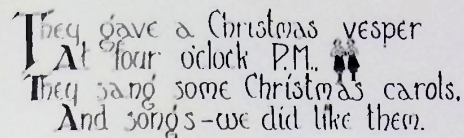 They gave a Christmas vesper
At four o'clock P.M.,
They sang some Christmas carols,
And songs-we did like them.